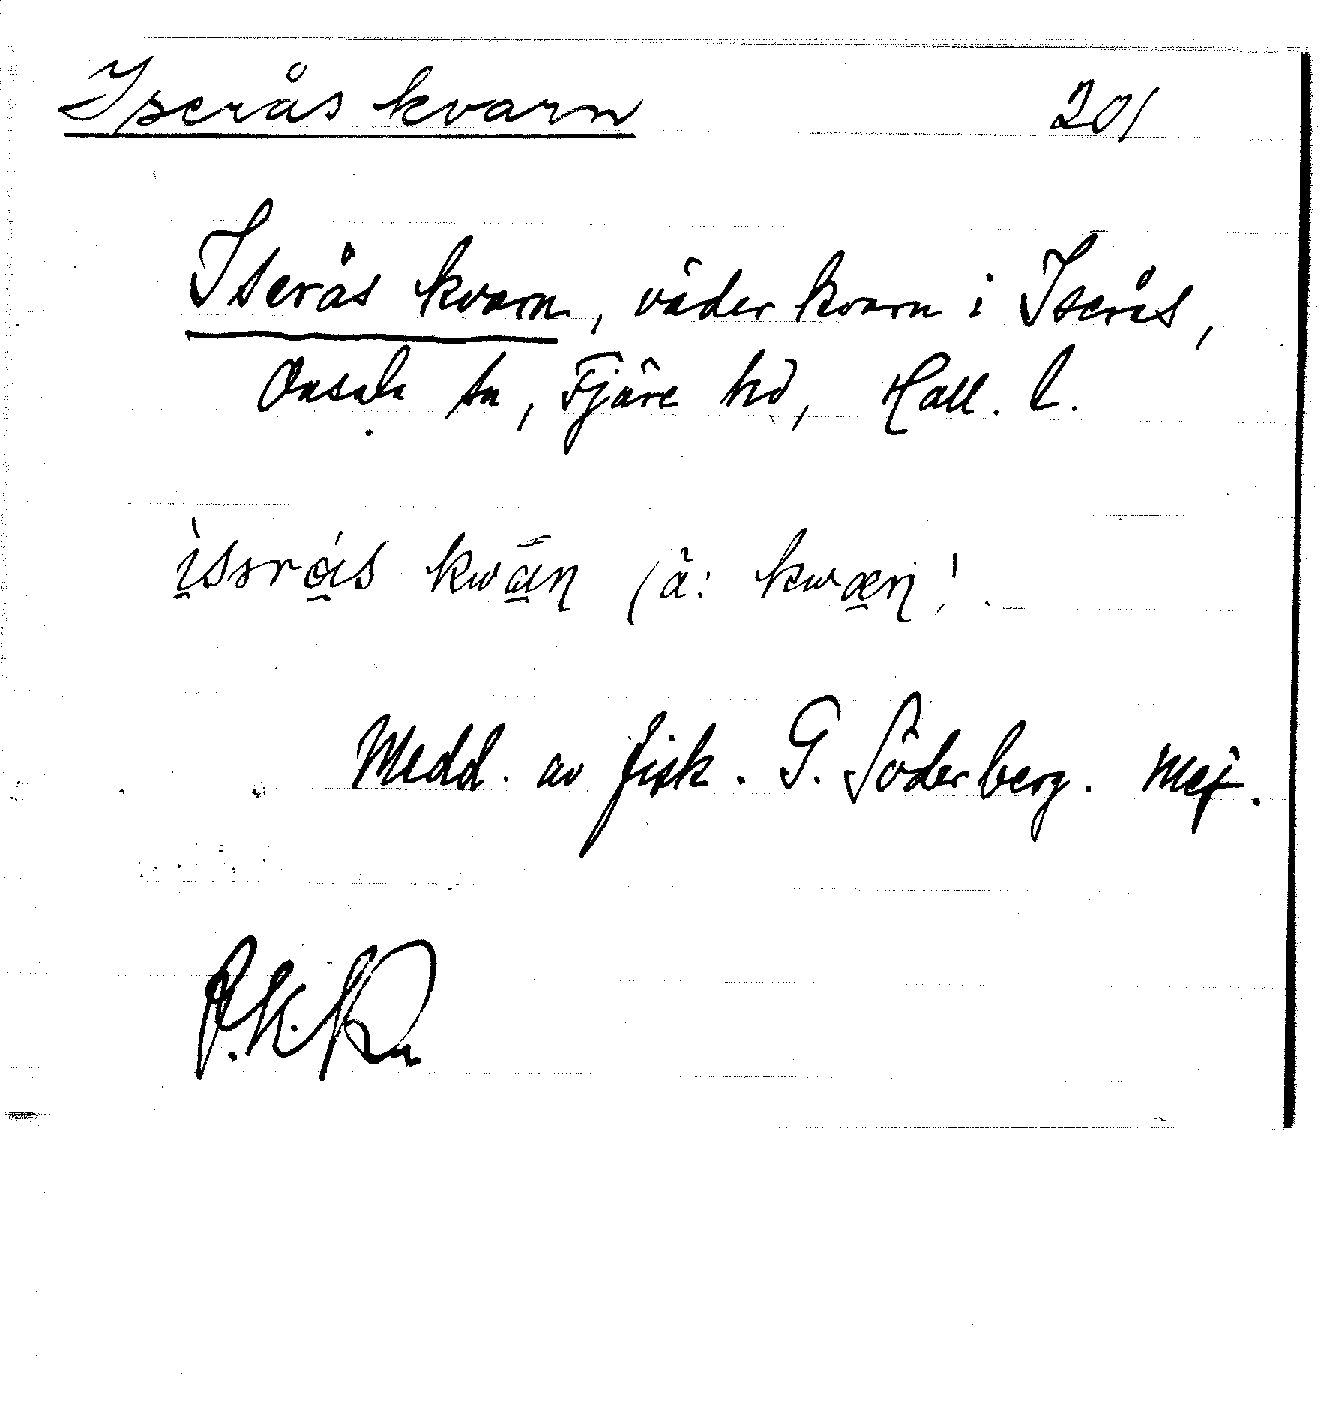 Iserås kvarn 201
Iserås kvarn, väderkvarn i Iserås,
Onsala sn, Fjäre hd, Hall. l.
kwän (ä: kwæn)
Medd. av fisk. G. Söderberg.